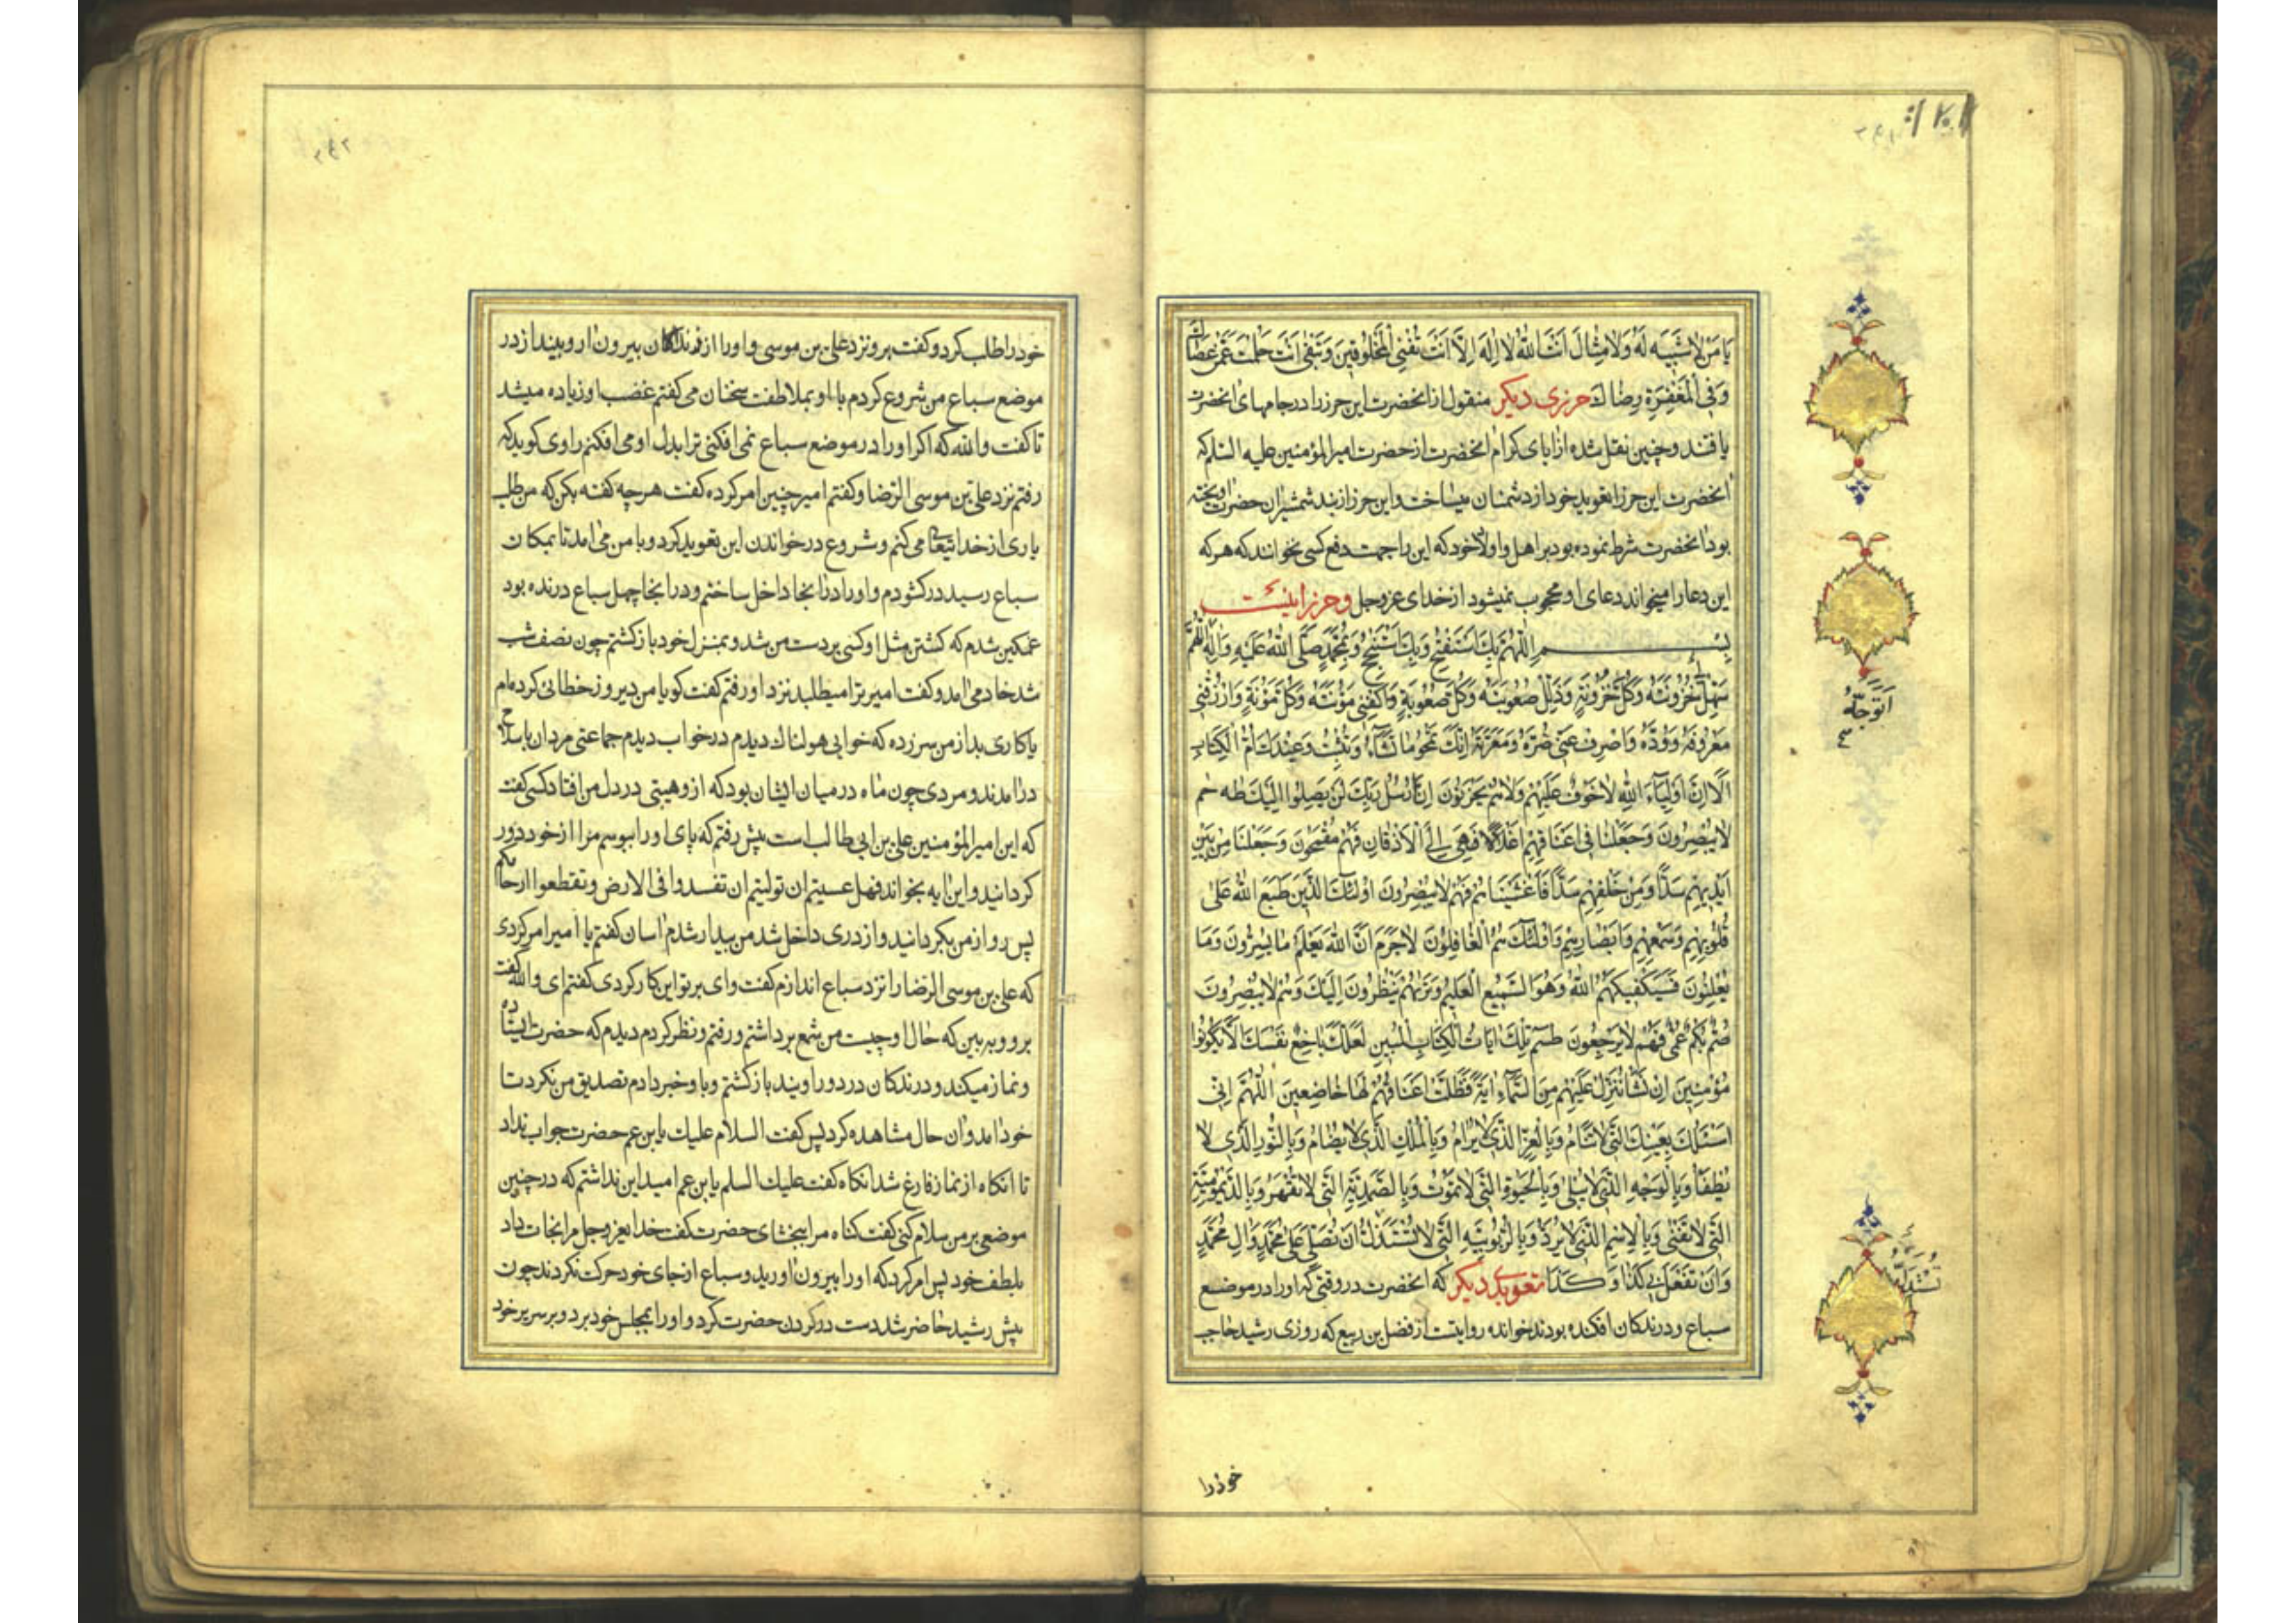 یَا مَنْ لَا شَبِیهَ لَهُ وَلَا مِثَالَ اَنْتَ اللّٰهُ لَا اِلٰهَ اِلَّا اَنْتَ تُفْنِی الْمَخْلُوقِینَ وَتَبْقٰی اَنْتَ حَلُمْتَ عَمَّنْ عَصَاكَ
وَفِی الْمَغْفِرَةِ رِضَاكَ حرزی دیکر منقول از انحضرت این حرز را در جامهای انحضرت
یافتند و چنین نقل شده از ابای کرام انحضرت از حضرت امیرالمؤمنین علیه السلم که
انحضرت این حرز را تعوید خود از دشمنان میساخت و این حرز از بند شمشیر ان حضرت اویخته
بود انحضرت شرط نموده بود بر اهل و اولاد خود که این را جهت دفع کسی نخوانند که هر که
این دعا را میخواند دعای او محجوب نمیشود از خدای عزوجل و حرز اینست
بِسْمِ اللّٰهُمَّ بِكَ اَسْتَفْتِحُ وَبِكَ اَسْتَنْجِحُ وَبِمُحَمَّدٍ صَلَّی اللّٰهُ عَلَیْهِ وَاٰلِهِ اَتَوَجَّهُ اللّٰهُمَّ
سَهِّلْ لِی حُزُونَتَهُ وَكُلَّ حُزُونَةٍ وَذَلِّلْ صُعُوبَتَهُ وَكُلَّ صُعُوبَةٍ وَاكْفِنِی مَؤُنَتَهُ وَكُلَّ مَؤُنَةٍ وَارْزُقْنِی
مَعْرُوفَهُ وَوُدَّهُ وَاصْرِفْ عَنِّی ضُرَّهُ وَمَعَرَّتَهُ اِنَّكَ تَمْحُو مَا تَشَاءُ وَتُثْبِتُ وَعِنْدَكَ اُمُّ الْكِتَابِ
اَلَا اِنَّ اَوْلِیَاءَ اللّٰهِ لَا خَوْفٌ عَلَیْهِمْ وَلَا هُمْ یَحْزَنُونَ اِنَّا رُسُلُ رَبِّكَ لَنْ یَصِلُوا اِلَیْكَ طه حم
لَا یُبْصِرُونَ وَجَعَلْنَا فِی اَعْنَاقِهِمْ اَغْلَالًا فَهِیَ اِلَی الْاَذْقَانِ فَهُمْ مُقْمَحُونَ وَجَعَلْنَا مِنْ بَیْنِ
اَیْدِیهِمْ سَدًّا وَمِنْ خَلْفِهِمْ سَدًّا فَاَغْشَیْنَاهُمْ فَهُمْ لَا یُبْصِرُونَ اُولٰئِكَ الَّذِینَ طَبَعَ اللّٰهُ عَلٰی
قُلُوبِهِمْ وَسَمْعِهِمْ وَاَبْصَارِهِمْ وَاُولٰئِكَ هُمُ الْغَافِلُونَ لَا جَرَمَ اَنَّ اللّٰهَ یَعْلَمُ مَا یُسِرُّونَ وَمَا
یُعْلِنُونَ فَسَیَكْفِیكَهُمُ اللّٰهُ وَهُوَ السَّمِیعُ الْعَلِیمُ وَتَرٰیهُمْ یَنْظُرُونَ اِلَیْكَ وَهُمْ لَا یُبْصِرُونَ
صُمٌّ بُكْمٌ عُمْیٌ فَهُمْ لَا یَرْجِعُونَ طسم تِلْكَ اٰیَاتُ الْكِتَابِ الْمُبِینِ لَعَلَّكَ بَاخِعٌ نَفْسَكَ اَلَّا یَكُونُوا
مُؤْمِنِینَ اِنْ نَشَأْ نُنَزِّلْ عَلَیْهِمْ مِنَ السَّمَاءِ اٰیَةً فَظَلَّتْ اَعْنَاقُهُمْ لَهَا خَاضِعِینَ اَللّٰهُمَّ اِنِّی
اَسْئَلُكَ بِعَیْنِكَ الَّتِی لَا تَنَامُ وَبِالْعِزِّ الَّذِی لَا یُرَامُ وَبِالْمُلْكِ الَّذِی لَا یُضَامُ وَبِالنُّورِ الَّذِی لَا
یُطْفَأُ وَبِالْوَجْهِ الَّذِی لَا یَبْلٰی وَبِالْحَیٰوةِ الَّتِی لَا تَمُوتُ وَبِالصَّمَدِیَّةِ الَّتِی لَا تُقْهَرُ وَبِالدَّیْمُومِیَّةِ
الَّتِی لَا تَفْنٰی وَبِالْاِسْمِ الَّذِی لَا یُرَدُّ وَبِالرُّبُوبِیَّةِ الَّتِی لَا تُسْتَذَلُّ اَنْ تُصَلِّیَ عَلٰی مُحَمَّدٍ وَاٰلِ مُحَمَّدٍ
وَاَنْ تَفْعَلَ بِی كَذَا وَكَذَا تعوید دیکر که انحضرت در وقتی که او را در موضع
سباع و درندکان افکنده بودند خوانده روایتست از فضل بن ربیع که روزی رشید حاجب
اَتَوَجَّهُ
خود را
خود را طلب کرد و کفت برو نزد علی بن موسی و او را از زندان بیرون ار و بینداز در
موضع سباع من شروع کردم با او بملاطفت سخنان می کفتم غضب او زیاده میشد
تا کفت والله که اکر او را در موضع سباع نمی افکنی ترا بدل او می افکنم راوی کوید که
رفتم نزد علی بن موسی الرضا و کفتم امیر چنین امر کرده کفت هرچه کفته بکن که من طلب
یاری از خدا تعالی می کنم و شروع در خواندن این تعوید کرد و با من می امد تا بمکان
سباع رسید در کشودم و او را در انجا داخل ساختم و در انجا چهل سباع درنده بود
غمکین شدم که کشتن مثل او کسی بر دست من شد و بمنزل خود باز کشتم چون نصف شب
شد خادمی امد و کفت امیر ترا میطلبد نزد او رفتم کفت کویا من دیروز خطائی کرده‌ام
یا کاری بد از من سر زده که خوابی هولناك دیدم در خواب دیدم جماعتی مردان با سلاح
درامدند و مردی چون ماه در میان ایشان بود که از و هیبتی در دل من افتاد کسی کفت
که این امیرالمؤمنین علی بن ابی طالب است پیش رفتم که پای او را ببوسم مرا از خود دور
کردانید و این ایه بخواند فهل عسیتم ان تولیتم ان تفسدوا فی الارض و تقطعوا ارحامکم
پس رو از من بکردانید و از دری داخل شد من بیدار شدم اسان کفتم یا امیر امر کردی
که علی بن موسی الرضا را نزد سباع اندازم کفت وای بر تو این کار کردی کفتم ای والله کفت
برو و به بین که حال او چیست من شمع برداشتم و رفتم و نظر کردم دیدم که حضرت ایستاده
و نماز میکند و درندکان در دور اویند باز کشتم و باو خبر دادم تصدیق من نکرد تا
خود امد و ان حال مشاهده کرد پس کفت السلام علیك یابن عم حضرت جواب نداد
تا انکاه از نماز فارغ شد انکاه کفت علیك السلم یابن عم امید این نداشتم که در چنین
موضعی بر من سلام کنی کفت کناه مرا ببخشای حضرت کفت خدای عزوجل مرا نجات داد
بلطف خود پس امر کرد که او را بیرون اورید و سباع از جای خود حرکت نکردند چون
پیش رشید حاضر شد دست در کردن حضرت کرد و او را بمجلس خود برد و بر سریر خود